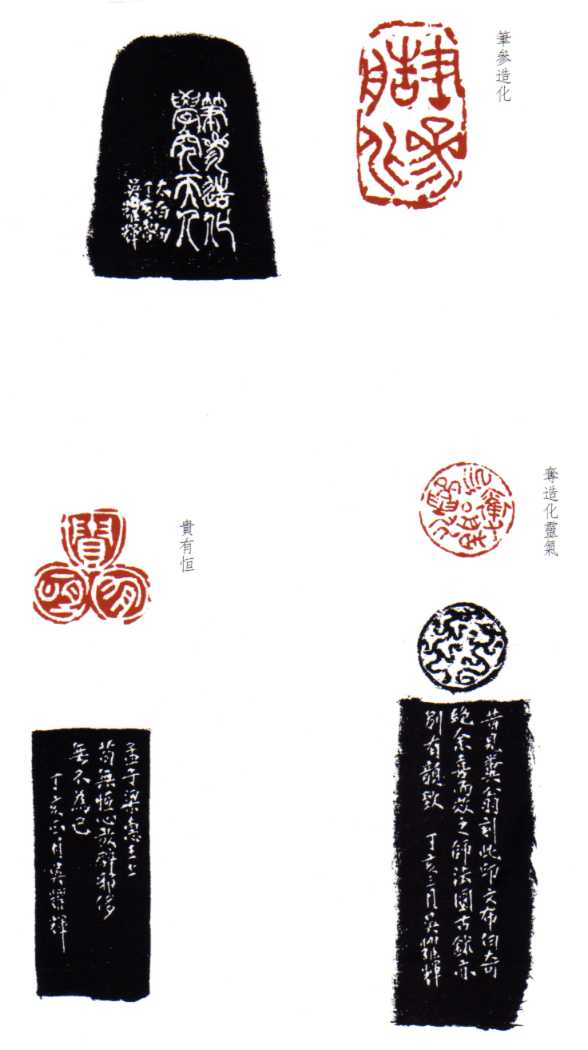 筆參造化
筆參造化
學究天人
太白句
丁亥
吳耀輝
奪造化靈氣
昔見糞翁刻此印文布白奇
絕余喜而效之師法圜古鉥亦
別有韻致 丁亥三月吳耀輝
貴有恒
貴有恒
孟子梁惠王上
苟無恆心放辟邪侈
無不為已
丁亥正月吳耀輝